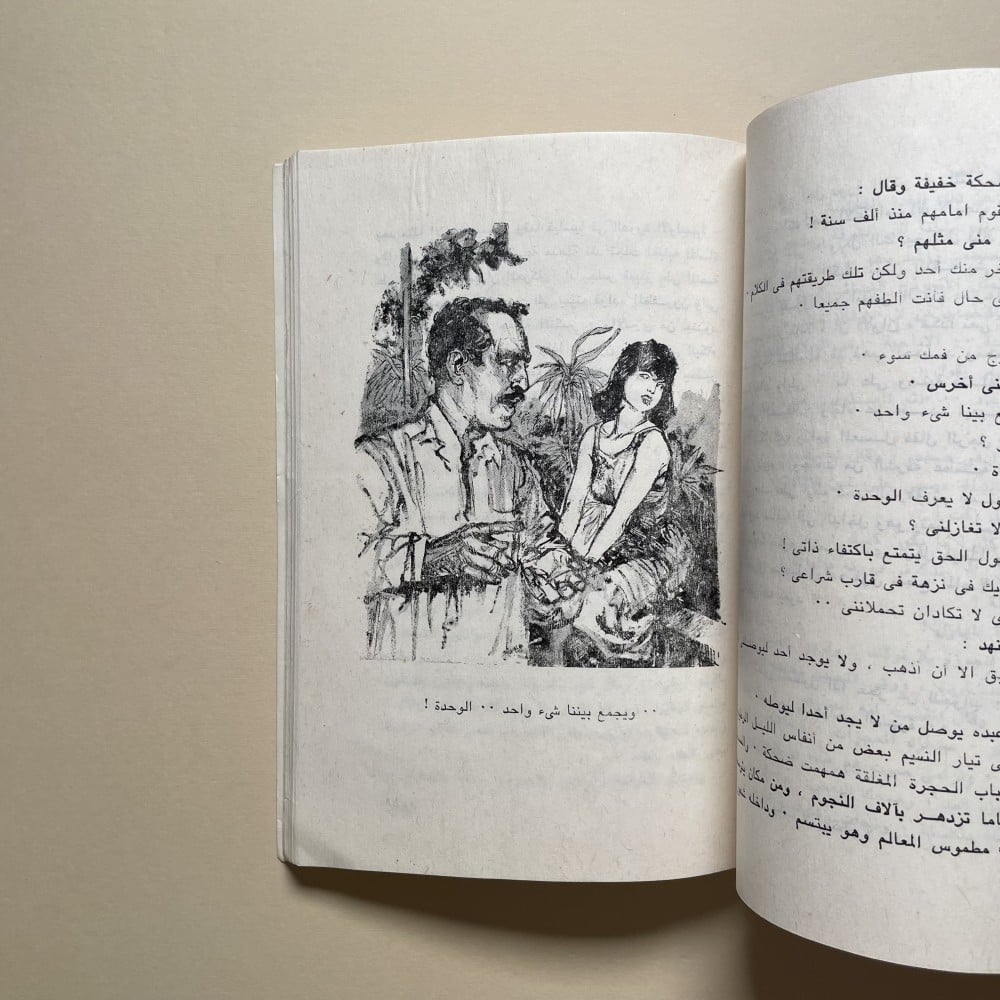 ضحكة خفيفة وقال :
امامهم منذ ألف سنة !
منى مثلهم ؟
منك أحد ولكن تلك طريقتهم فى الكلام ٠
حال فأنت ألطفهم جميعا ٠
من فمك سوء ٠
أخرس ٠
بينا شىء واحد ٠
؟
٠
لا يعرف الوحدة ٠
لا تغازلنى ؟
الحق يتمتع باكتفاء ذاتى !
فى نزهة فى قارب شراعى ؟
لا تكادان تحملاننى ٠٠
:
الا أن أذهب ، ولا يوجد أحد
عبده يوصل من لا يجد أحدا ليوصله ٠
تيار النسيم بعض من أنفاس الليل
باب الحجرة المغلقة همهمت ضحكة ٠
تزدهـر بآلاف النجوم ، ومن مكان
مطموس المعالم وهو يبتسم ٠ وداخله
٠٠ ويجمع بيننا شىء واحد ٠٠ الوحدة !